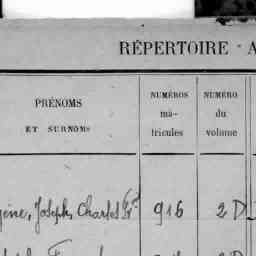 RÉPERTOIRE · A
PRÉNOMS
ET SURNOMS
NUMÉROS
ma-
tricules
NUMÉRO
du
volume
gène, Joseph, Charles 916 2 D